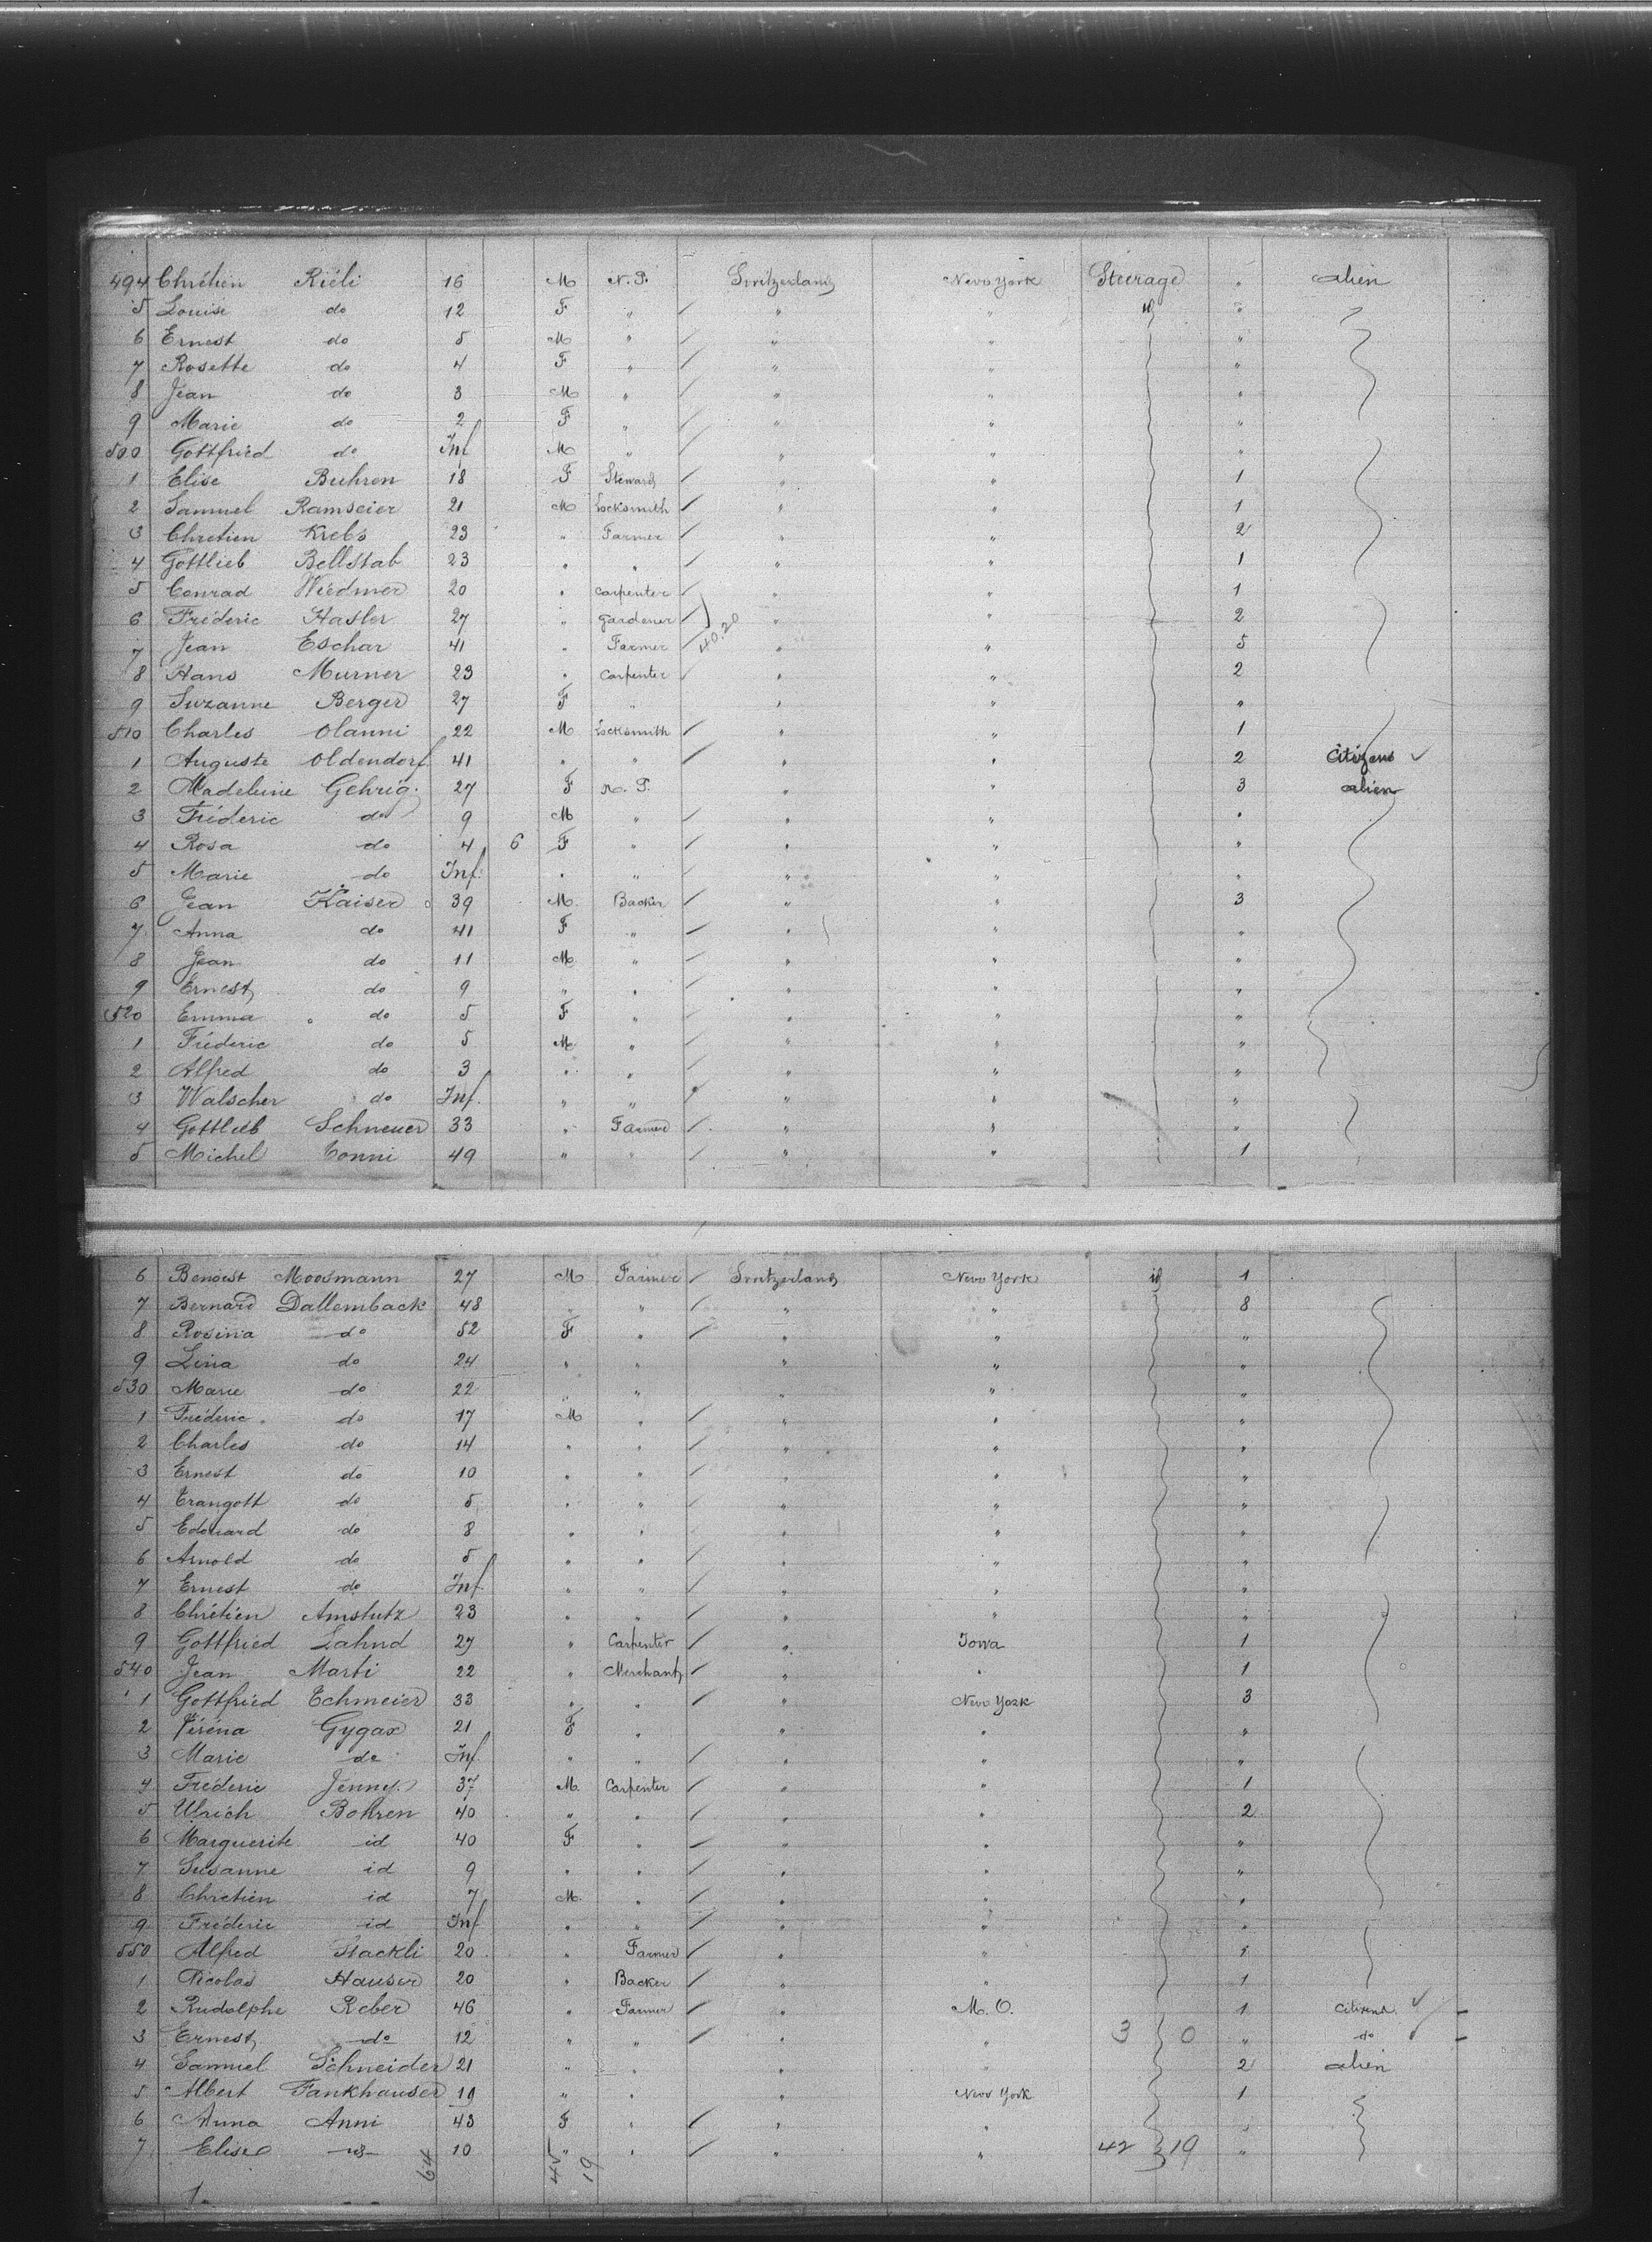 494 Chrétien Riéli 16 M N.P. Switzerland New York Steerage " alien
5 Louise do 12 F " / " " id "
6 Ernest do 5 M " / " " "
7 Rosette do 4 F " / " " "
8 Jean do 3 M " / " " "
9 Marie do 2 F " / " " "
500 Gottfried do Inf M " / " " "
1 Elise Buhren 18 F Steward / " " 1
2 Samuel Ramseier 21 M Locksmith / " " 1
3 Chretien Krebs 23 " Farmer / " " 2
4 Gottlieb Bellstab 23 " " / " " 1
5 Conrad Wiedmer 20 " carpenter / " " 1
6 Fréderic Hasler 27 " gardener / " " 2
7 Jean Eschar 41 " Farmer / 40.20 " " 5
8 Hans Murner 23 " carpenter / " " 2
9 Suzanne Berger 27 F " " " "
510 Charles Olanni 22 M Locksmith / " " 1
1 Auguste Oldendorf 41 " " / " " 2 Citizens ✓
2 Madeleine Gehrig 27 F N.P. " " 3 alien
3 Fréderic do 9 M " / " " "
4 Rosa do 4 6 F " / " " "
5 Marie do Inf. " " / " " "
6 Jean Kaiser 39 M. Backer / " " 3
7 Anna do 41 F " / " " "
8 Jean do 11 M " / " " "
9 Ernest do 9 " " / " " "
520 Emma do 5 F " / " " "
1 Fréderic do 5 M " / " " "
2 Alfred do 3 " " / " " "
3 Walscher do Inf. " " / " " "
4 Gottlieb Schneuer 33 " Farmer / " " "
5 Michel Conni 49 " " / " " 1
6 Benoist Moosmann 27 M Farmer / Switzerland New York id 1
7 Bernard Dallemback 48 " " / " " 8
8 Rosina do 52 F " / " " "
9 Lina do 24 " " " " "
530 Marie do 22 " " " " "
1 Fréderic do 17 M " / " " "
2 Charles do 14 " " / " " "
3 Ernest do 10 " " / " " "
4 Erangott do 5 " " / " " "
5 Edouard do 8 " " / " " "
6 Arnold do 5 " " / " " "
7 Ernest do Inf. " " / " " "
8 Chrétien Amstutz 23 " " / " " "
9 Gottfried Zahnd 27 " Carpenter / " Iowa 1
540 Jean Marti 22 " Merchant / " " 1
1 Gottfried Echmeier 33 " " / " New York 3
2 Viréna Gygax 21 F " " " "
3 Marie do Inf. " " / " " "
4 Fréderic Jenny 37 M Carpenter / " " 1
5 Ulrich Bohren 40 " " / " " 2
6 Marguerite id 40 F " / " " "
7 Susanne id 9 " " / " " "
8 Chretien id 7 M. " / " " "
9 Fréderic id Inf " " / " " "
550 Alfred Stackli 20 " Farmer / " " 1
1 Nicolas Hauser 20 " Backer / " " 1
2 Rudolphe Reber 46 " Farmer / " M.O. 1 Citizens ✓
3 Ernest do 12 " " / " " 3 0 " do
4 Samuel Schneider 21 " " " " 2 alien
5 Albert Fankhauser 19 " " " New York 1
6 Anna Anni 43 F " / " " "
7 Elise 10 " " / " " 42 19 "
64 45 19